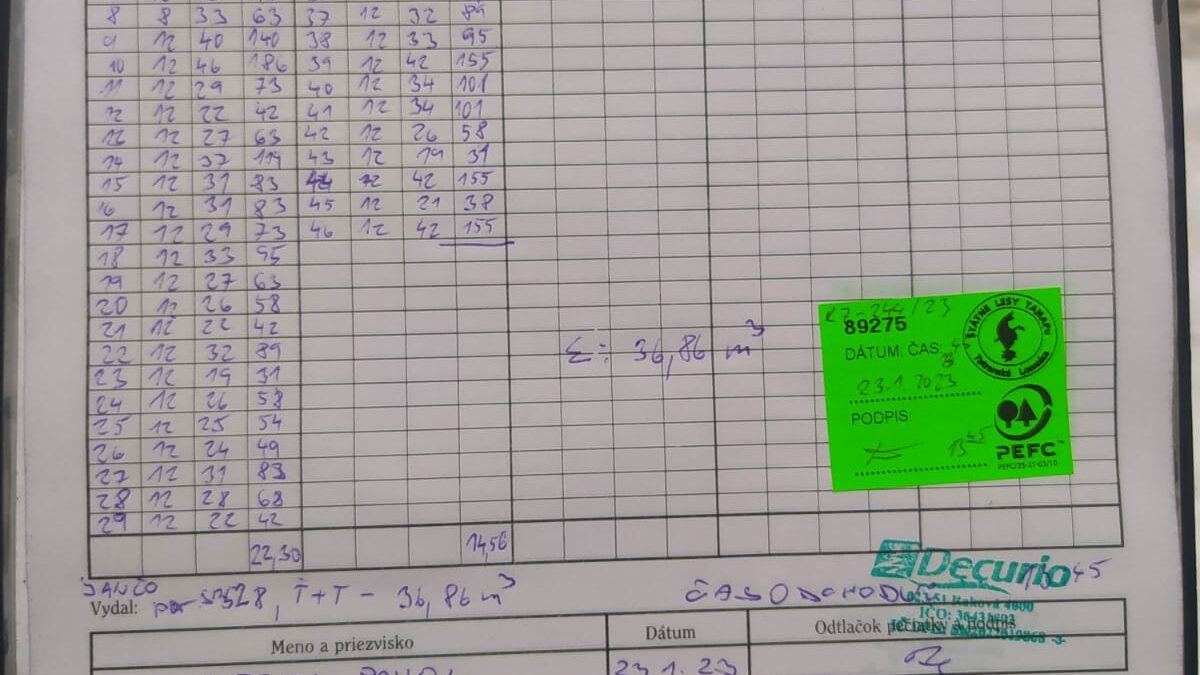 8 8 33 63 37 12 32 89
9 12 40 140 38 12 33 95
10 12 46 186 39 12 42 155
11 12 29 73 40 12 34 101
12 12 22 42 41 12 34 101
13 12 27 63 42 12 26 58
14 12 37 119 43 12 19 31
15 12 31 83 44 12 42 155
16 12 31 83 45 12 21 38
17 12 29 73 46 12 42 155
18 12 33 95
19 12 27 63
20 12 26 58
21 12 22 42
22 12 32 89
23 12 19 31
24 12 26 58
25 12 25 54
26 12 24 49
27 12 31 83
28 12 28 68
29 12 22 42
22,30 14,56
Σ: 36,86 m³
244/23
89275
DÁTUM, ČAS:
23.1.2023
PODPIS:
13 45
ŠTÁTNE LESY TANAPU
Tatranská Lomnica
PEFC™
PEFC/23-21-03/10
JANČO
Vydal: 528, T+T - 36,86 m³
ČAS ODCHODU 45
Decurio
IČO:
Meno a priezvisko
Dátum
Odtlačok pečiatky a podpis
23.1.23